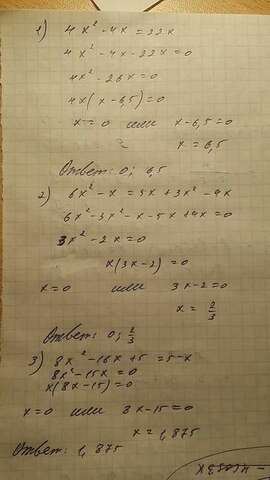 1) 4x² - 4x = 22x
4x² - 4x - 22x = 0
4x² - 26x = 0
4x(x - 6,5) = 0
x = 0 или x - 6,5 = 0
x = 6,5
Ответ: 0; 6,5
2) 6x² - x = 5x + 3x² - 4x
6x² - 3x² - x - 5x + 4x = 0
3x² - 2x = 0
x(3x - 2) = 0
x = 0 или 3x - 2 = 0
x = 2/3
Ответ: 0; 2/3
3) 8x² - 16x + 5 = 5 - x
8x² - 15x = 0
x(8x - 15) = 0
x = 0 или 8x - 15 = 0
x = 1,875
Ответ: 1,875